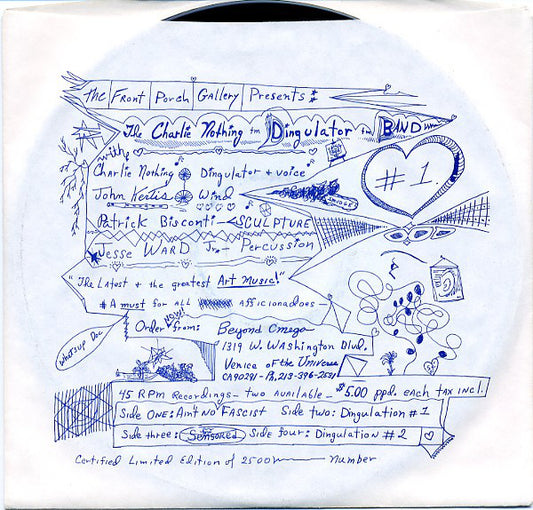 The Front Porch Gallery Presents:
The Charlie Nothing tm Dingulator tm BAND
with
Charlie Nothing Dingulator + voice
John Kertis Wind
SMUDGE
# 1
Patrick Bisconti - SCULPTURE
Jesse WARD Jr. - Percussion
"The Latest + the greatest Art Music!"
# A must for ALL afficionadoes -
Order NOW! from: Beyond Omega
1319 W. WAshington Blvd.
Venice of the Universe
CA 90291 - Ph. 213-396-2531
Whatsup Doc
45 RPM Recordings - two available - $5.00 ppd. each TAX incl.
Side ONE: Aint NO FASCIST Side two: Dingulation # 1
Side three: Sensored Side four: Dingulation # 2
Certified Limited Edition of 2500 Number